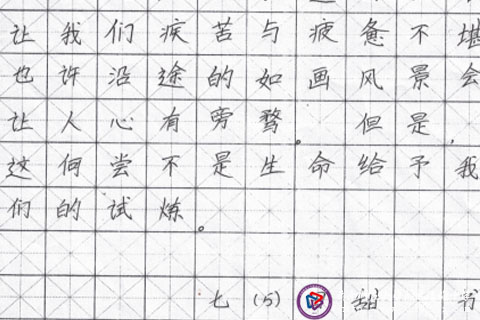 让我们疾苦与疲惫不堪
也许沿途的如画风景会
让人心有旁骛。但是，
这何尝不是生命给予我
们的试炼。
七(5) 甜 书